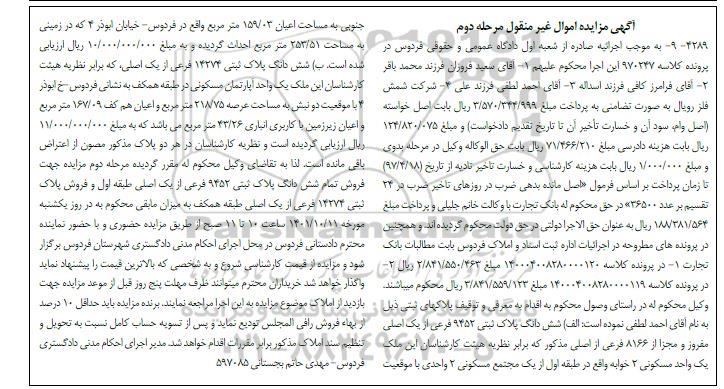 آگهی مزایده اموال غیر منقول مرحله دوم
۴۲۸۹- ۹- به موجب اجرائیه صادره از شعبه اول دادگاه عمومی و حقوقی فردوس در
پرونده کلاسه ۹۷۰۲۴۷ این اجرا محکوم علیهم ۱- آقای سعید فروزان فرزند محمد باقر
۲- آقای فرامرز کافی فرزند اسداله ۳- آقای احمد لطفی فرزند علی ۴- شرکت شمش
فلز رویال به صورت تضامنی به پرداخت مبلغ ۳/۵۷۰/۳۴۴/۹۹۹ ریال بابت اصل خواسته
(اصل وام، سود آن و خسارت تأخیر آن تا تاریخ تقدیم دادخواست) و مبلغ ۱۲۴/۸۲۰/۰۷۵
ریال بابت هزینه دادرسی مبلغ ۷۱/۴۶۶/۲۱۰ ریال بابت حق الوکاله وکیل در مرحله بدوی
و مبلغ ۱/۰۰۰/۰۰۰ ریال بابت هزینه کارشناسی و خسارت تاخیر تادیه از تاریخ (۹۷/۴/۱۸)
تا زمان پرداخت بر اساس فرمول «اصل مانده بدهی ضرب در روزهای تاخیر ضرب در ۲۴
تقسیم بر عدد ۳۶۵۰۰» در حق محکوم له بانک تجارت با وکالت خانم جلیلی و پرداخت مبلغ
۱۸۸/۳۸۱/۵۶۴ ریال به عنوان حق الاجرا دولتی در حق دولت محکوم گردیده اند. و همچنین
در پرونده های مطروحه در اجرائیات اداره ثبت اسناد و املاک فردوس بابت مطالبات بانک
تجارت ۱- در پرونده کلاسه ۱۴۰۰۰۴۰۰۸۲۸۰۰۰۰۱۲۰ مبلغ ۲/۸۴۱/۵۵۰/۴۶۳ ریال ۲-
در پرونده کلاسه ۱۴۰۰۰۴۰۰۸۲۸۰۰۰۰۱۱۹ مبلغ ۲/۸۴۱/۵۵۹/۱۲۳ ریال محکوم میباشند.
وکیل محکوم له در راستای وصول محکوم به اقدام به معرفی و توقیف پلاکهای ثبتی ذیل
به نام آقای احمد لطفی نموده است: الف) شش دانگ پلاک ثبتی ۹۴۵۲ فرعی از یک اصلی
مفروز و مجزا از ۸۱۶۶ فرعی از اصلی مذکور که برابر نظریه هیئت کارشناسان این ملک
یک واحد مسکونی ۲ خوابه واقع در طبقه اول از یک مجتمع مسکونی ۲ واحدی با موقعیت
جنوبی به مساحت اعیان ۱۵۹/۰۳ متر مربع واقع در فردوس- خیابان ابوذر ۴ که در زمینی
به مساحت ۲۵۳/۵۱ متر مربع احداث گردیده و به مبلغ ۱۰/۰۰۰/۰۰۰/۰۰۰ ریال ارزیابی
شده است. ب) شش دانگ پلاک ثبتی ۱۴۲۷۴ فرعی از یک اصلی، که برابر نظریه هیئت
کارشناسان این ملک یک واحد آپارتمان مسکونی در طبقه همکف به نشانی فردوس-خ ابوذر
۴ با موقعیت دو نبش به مساحت عرصه ۲۱۸/۷۵ متر مربع و اعیان هم کف ۱۶۷/۰۹ متر مربع
و اعیان زیرزمین با کاربری انباری ۴۳/۲۶ متر مربع می باشد که به مبلغ ۱۱/۰۰۰/۰۰۰/۰۰۰
ریال ارزیابی گردیده است و نظریه کارشناسان در هر دو پلاک مذکور مصون از اعتراض
باقی مانده است. لذا به تقاضای وکیل محکوم له مقرر گردیده مرحله دوم مزایده جهت
فروش تمام شش دانگ پلاک ثبتی ۹۴۵۲ فرعی از یک اصلی طبقه اول و فروش پلاک
ثبتی ۱۴۲۷۴ فرعی از یک اصلی طبقه همکف به میزان مابقی محکوم به در روز یکشنبه
مورخه ۱۴۰۱/۱۰/۱۱ ساعت ۱۰ تا ۱۱ صبح از طریق مزایده حضوری و با حضور نماینده
محترم دادستانی فردوس در محل اجرای احکام مدنی دادگستری شهرستان فردوس برگزار
شود و مزایده از قیمت کارشناسی شروع و به شخصی که بالاترین قیمت را پیشنهاد نماید
واگذار خواهد شد خریداران محترم میتوانند ظرف مهلت پنج روز قبل از موعد مزایده جهت
بازدید از املاک موضوع مزایده به این اجرا مراجعه نمایند. برنده مزایده باید حداقل ۱۰ درصد
از بهاء فروش رافی المجلس تودیع نماید و پس از تسویه حساب کامل نسبت به تحویل و
تنظیم سند املاک مذکور برابر مقررات اقدام خواهد شد. مدیر اجرای احکام مدنی دادگستری
فردوس- مهدی حاتم بجستانی ۵۹۷۰۸۵